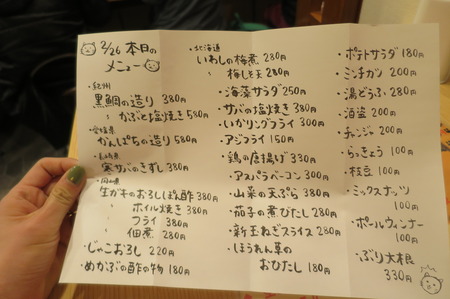 2/26 本日の
メニュー
・紀州
黒鯛の造り 380円
〃 かぶと塩焼き 580円
・愛媛県
かんぱちの造り 580円
・長崎県
寒サバのきずし 380円
・岡山県
生ガキのおろしぽん酢 380円
ホイル焼き 380円
フライ 380円
佃煮 280円
・じゃこおろし 220円
・めかぶの酢の物 180円
・北海道
いわしの梅煮 280円
〃 梅しそ天 280円
・海藻サラダ 250円
・サバの塩焼き 380円
・いかリングフライ 300円
・アジフライ 150円
・鶏の唐揚げ 330円
・アスパラベーコン 300円
・山菜の天ぷら 380円
・茄子の煮びたし 280円
・新玉ねぎスライス 280円
・ほうれん草の
おひたし 180円
・ポテトサラダ 180円
・ミンチカツ 200円
・湯どうふ 280円
・酒盗 200円
・チャンジャ 200円
・らっきょう 100円
・枝豆 100円
・ミックスナッツ
100円
・ポールウィンナー
100円
・ぶり大根
330円